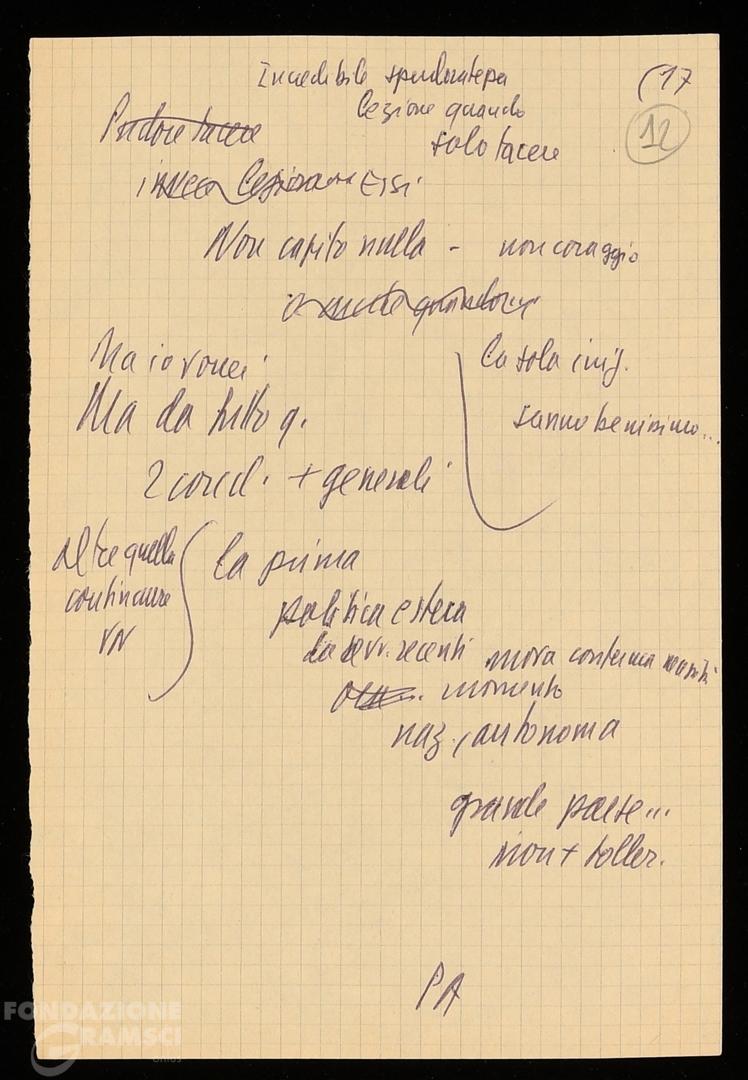 Incredibile spudoratezza
(17
lezione quando
12
Pudore tacere
solo tacere
invece lezione Essi
Non capito nulla - non coraggio
Ma io vorrei
la sola
Ma da tutto q.
sanno benissimo...
2 consid. + generali
oltre quella
continuare
VN
la prima
politica estera
da avv. recenti nuova conferma
momento
naz., autonoma
grande paese...
non + toller.
PA
FONDAZIONE
GRAMSCI
onlus